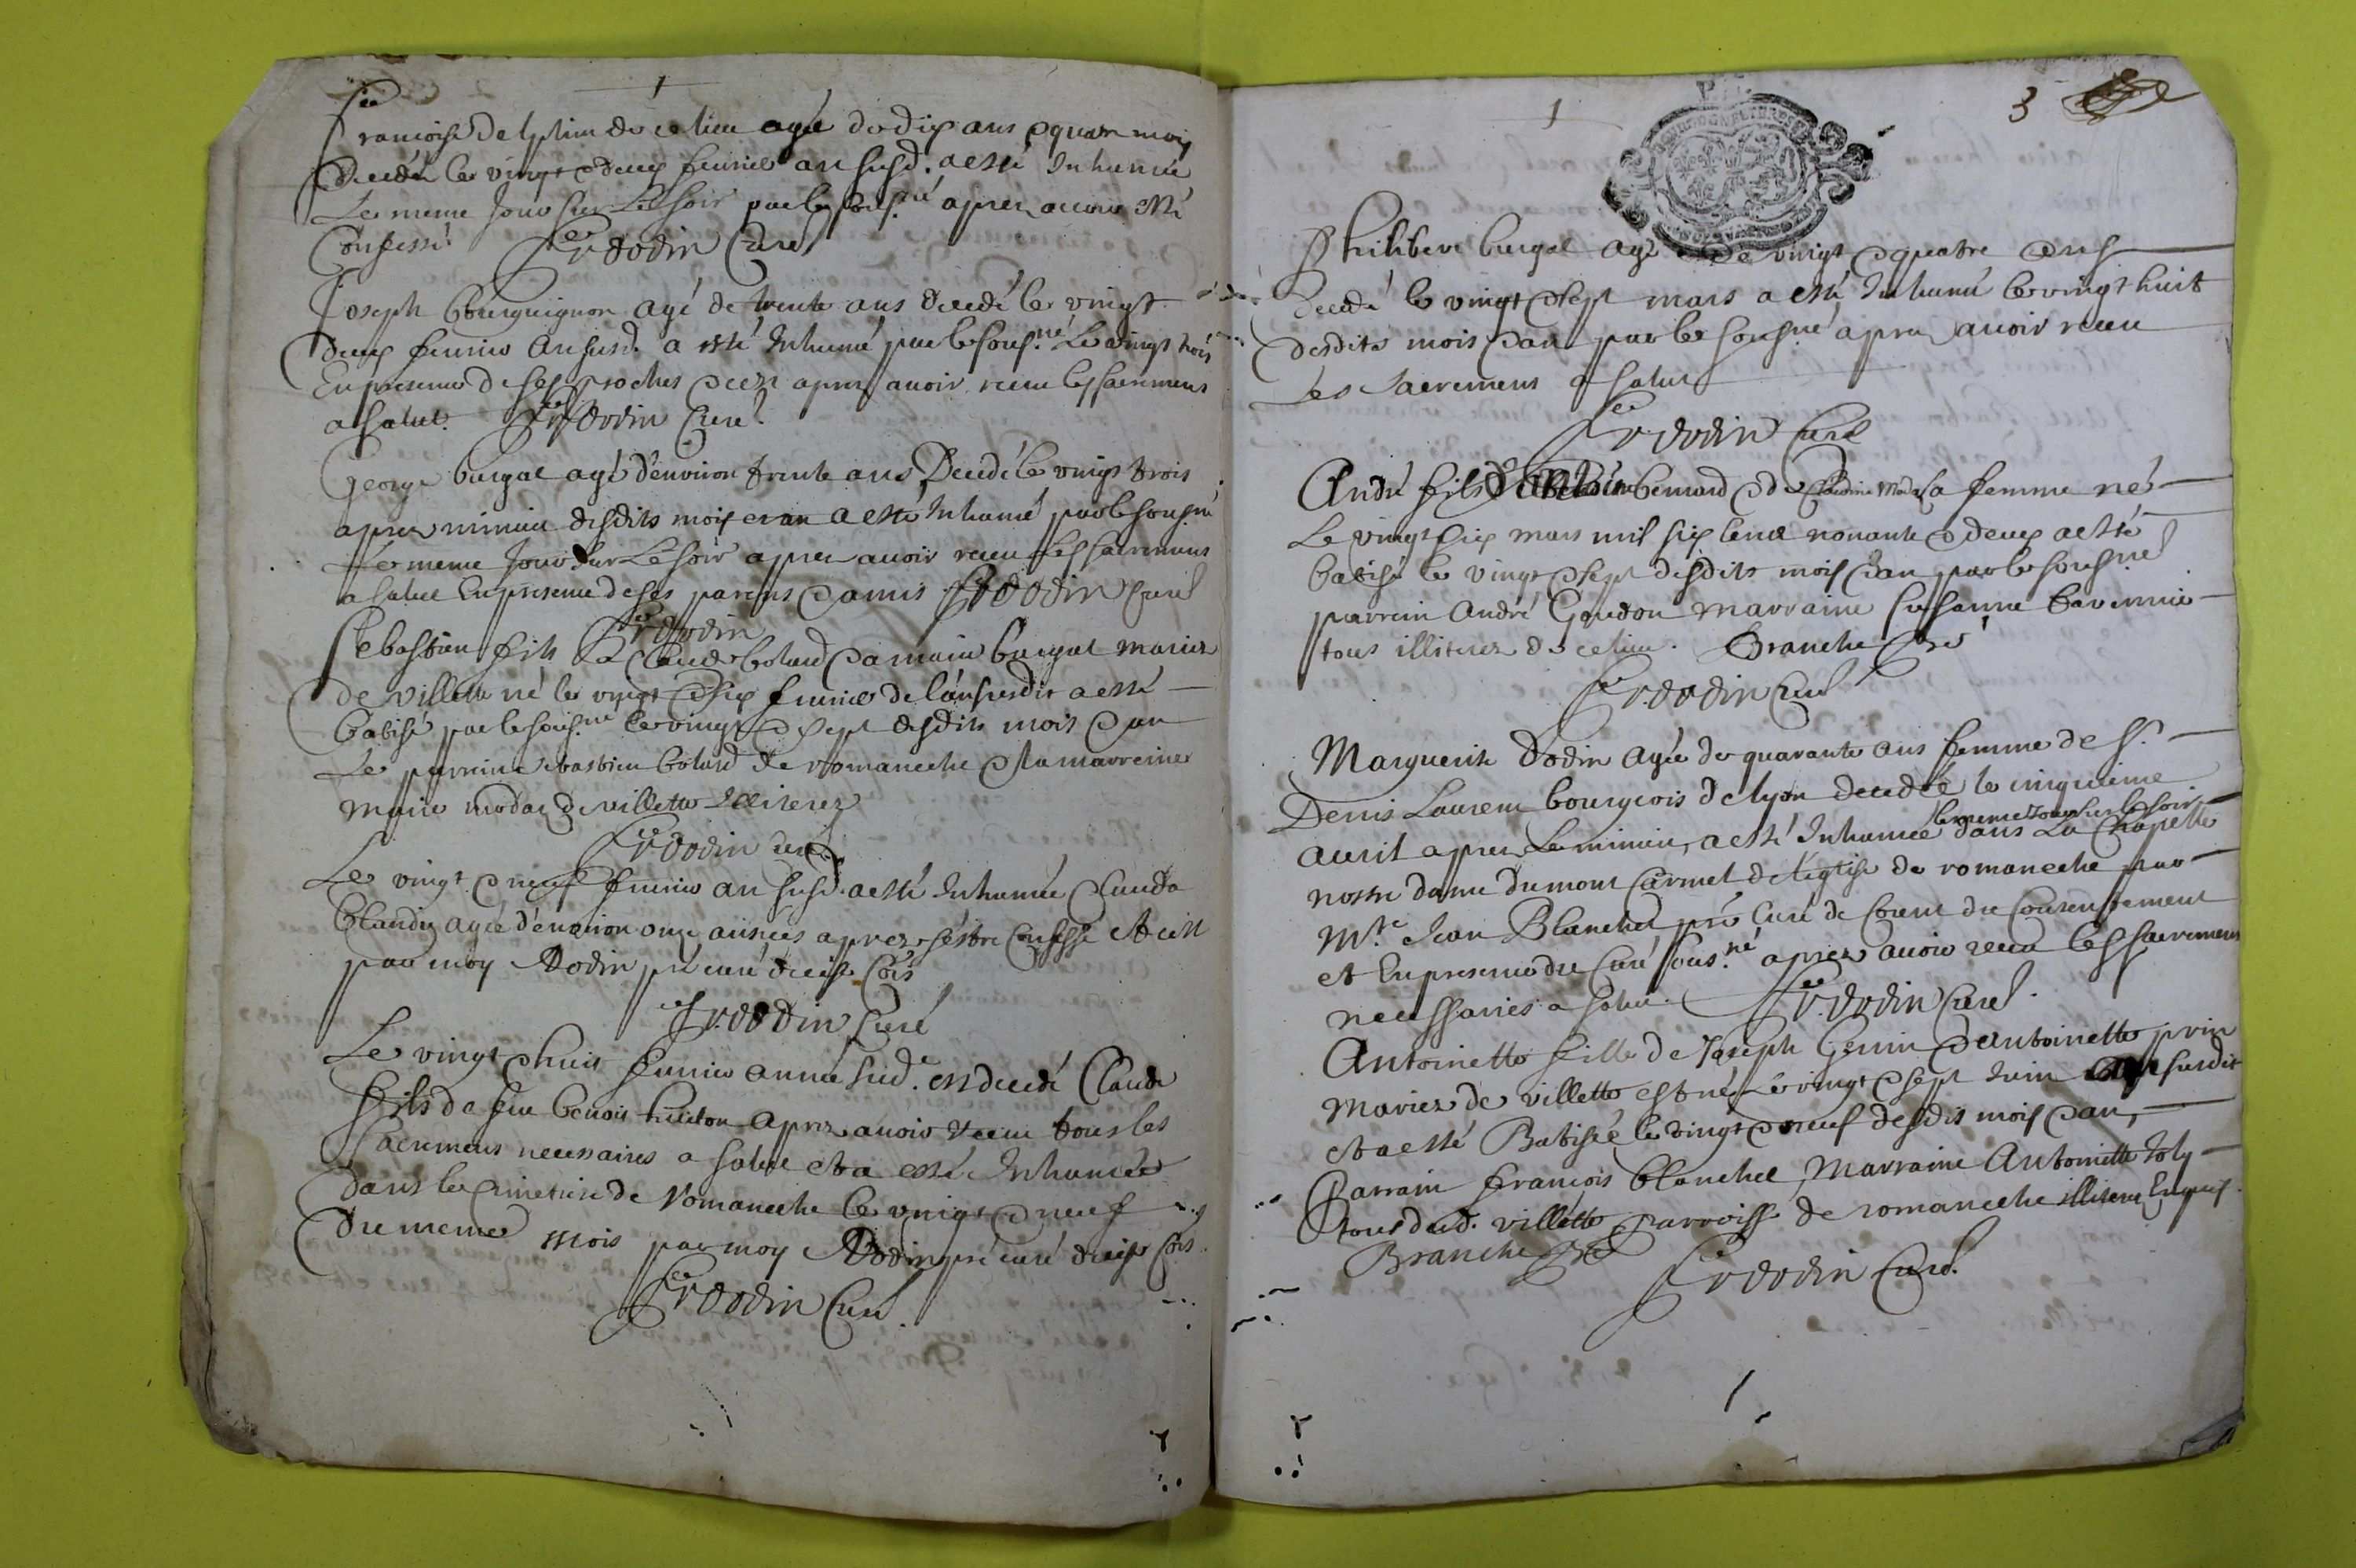 1
francoise delphin de ce lieu agée de dix ans & quatre mois
decedée le vingt & deux feurier an susd. a esté Inhumée
Le meme Jour sur Le soir par le sous.né apres auoir esté
Confessé fr dodin Curé
Joseph bourguignon agé de trente ans decedé le vingt
deux feurier an susd. a esté Inhumé par le sous.né Le vingt trois
En presence de ses proches apres auoir receu les sacremens
a salut. fr dodin Curé.
George burgat agé d'enuiron trente ans Decedé le vingt trois
apres minuit desdits mois et an a esté Inhumé par le sousné
Le meme Jour sur Le soir apres auoir receu les sacremens
a salut En presence de ses parens & amis fr dodin Curé
fr dodin
Sebastien fils de Claude bolard & a marie burgat mariez
de villette né le vingt & six feurier de l'an susdit a esté
batisé par le sous.né le vingt & sept desdits mois & an
Le parrein sebastien bolard de romaneche & la marreine
marie modas de villette Illiterez
fr dodin curé
Le vingt & neuf feurier an susd. a esté Inhumée Clauda
blandin agée d'enuiron onze années apres s'estre confessé
par moy Dodin pre curé dudit
fr. dodin Curé
Le vingt & huit feurier année susd.e est decedé Claude
fils de feu benoit apres auoir receu tous les
sacremens necessaires a salut et a esté Inhumée
dans le cimetiere de Romaneche le vingt & neuf
du meme mois par moy Dodin pre curé dudit
fr dodin Curé.
1
3
Philibert burgat agé de vingt & quatre ans
decedé le vingt & sept mars a esté Inhumé le vingt huit
desdits mois & an par le sous.né apres auoir receu
les sacremens a salut
fr. dodin Curé
André fils de bernard & de Claudine sa femme né
Le vingt six mars mil six cent nonante & deux a esté
batisé le vingt & sept desdits mois & an par le sous.né
parrein André Goudon marraine susanne
tous illiterez de ce lieu. Branche
fr. dodin Curé
Marguerite Dodin agée de quarante ans femme de Sr.
Denis Laurent bourgeois de lyon decedée le cinquieme
le meme Jour sur le soir
auril apres Le minuit, a esté Inhumée dans La Chapelle
nostre dame du mont Carmel de l'eglise de romaneche par
Mre. Jean Blanchet pre Curé de Corent du consentement
et En presence du Curé sous.né apres auoir receu les sacremens
necessaires a salut. fr. dodin Curé.
Antoinette fille de Joseph Genin & d'antoinette prin
mariez de villette est née le vingt & sept Juin susdit
et a esté Batisée le vingt & neuf desdits mois & an,
Parrain francois blanchet, Marraine Antoinette Joly
tous dud. villette parroisse de romaneche illiterez Enquis.
Branche
fr dodin Curé.